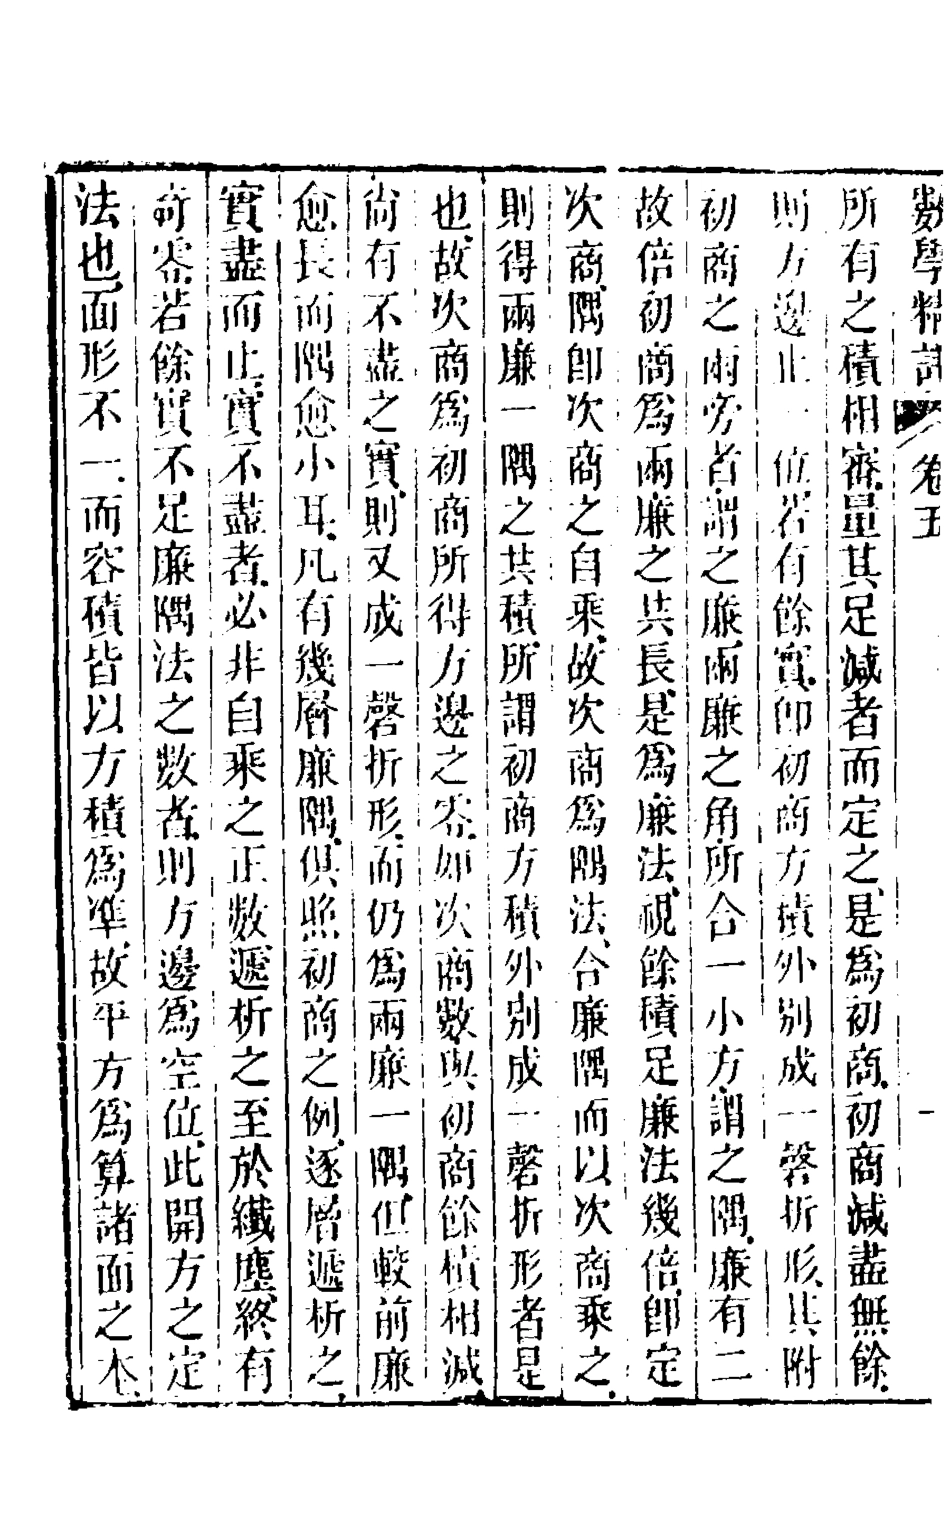 數學精詳 卷五 一
所有之積相審量其足減者而定之是爲初商初商減盡無餘
則方邊止一位若有餘實卽初商方積外別成一磬折形其附
初商之兩旁者謂之廉兩廉之角所合一小方謂之隅廉有二
故倍初商爲兩廉之共長是爲廉法視餘積足廉法幾倍卽定
次商隅卽次商之自乘故次商爲隅法合廉隅而以次商乘之
則得兩廉一隅之共積所謂初商方積外別成一磬折形者是
也故次商爲初商所得方邊之零如次商數與初商餘積相減
尙有不盡之實則又成一磬折形而仍爲兩廉一隅但較前廉
愈長而隅愈小耳凡有幾層廉隅俱照初商之例逐層遞析之
實盡而止實不盡者必非自乘之正數遞析之至於纖塵終有
奇零若餘實不足廉隅法之數者則方邊爲空位此開方之定
法也面形不一而容積皆以方積爲準故平方爲算諸面之本